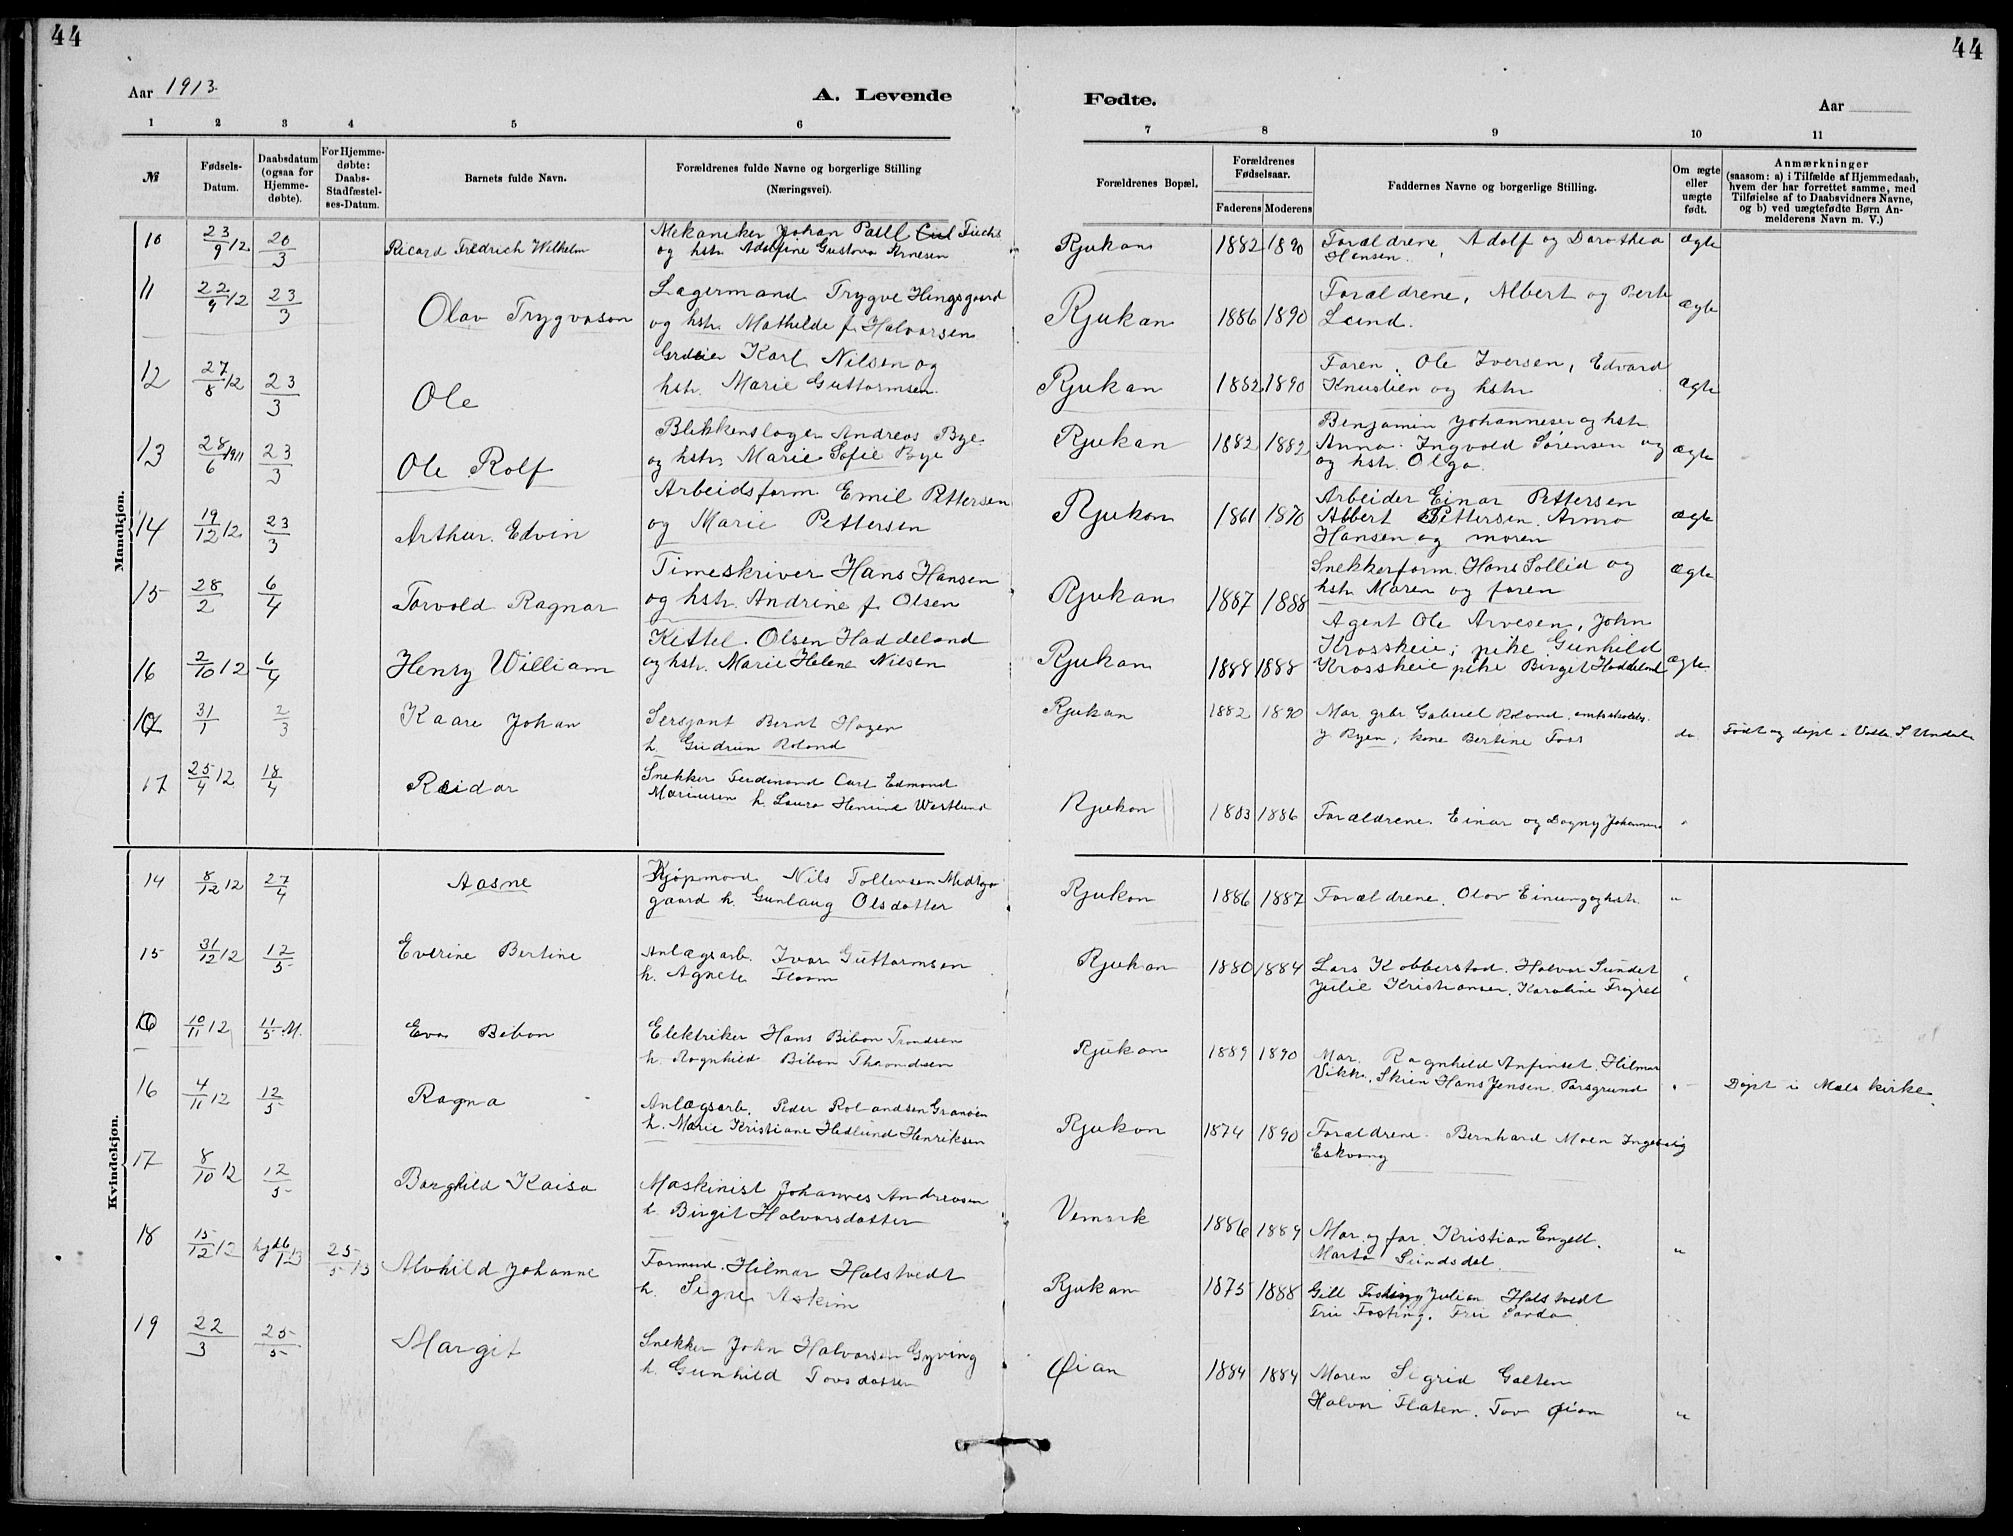 44
44
Aar 1913.
A. Levende
Fødte.
Aar
1 2 3 4 5 6 7 8 9 10 11
№
Fødsels-
Datum.
Daabsdatum
(ogsaa for
Hjemme-
døbte).
For Hjemme-
døbte:
Daabs-
Stadfæstel-
ses-Datum.
Barnets fulde Navn.
Forældrenes fulde Navne og borgerlige Stilling
(Næringsvei).
Forældrenes Bopæl.
Forældrenes
Fødselsaar.
Faderens Moderens
Faddernes Navne og borgerlige Stilling.
Om ægte
eller
uægte
født.
Anmærkninger
(saasom: a) i Tilfælde af Hjemmedaab,
hvem der har forrettet samme, med
Tilføielse af to Daabsvidners Navne,
og b) ved uægtefødte Børn An-
melderens Navn m. V.)
Mandkjøn.
10 23/9 12 20/3 Ricard Fredrich Wilhelm Mekaniker Johan Paul Fuchs Rjukan 1882 1890 Forældrene, Adolf og Dorothea ægte
og hstr. Adolfine Gustava Arnesen Hansen.
11 22/9 12 23/3 Olav Trygvason Lagermand Trygve Hingsgaard Rjukan 1886 1890 Forældrene, Albert og Berte ægte
og hstr. Mathilde f. Halvorsen Lund.
12 27/8 12 23/3 Ole Karl Nilsen og Rjukan 1890 Faren, Ole Iversen, Edvard ægte
hstr. Marie Guttormsen Knustien og hstr
13 28/6 1911 23/3 Ole Rolf Blikkenslager Andreas Bye Rjukan 1882 1882 Benjamin Johannesen og hstr ægte
og hstr. Marie Sofie Bye Anna. Ingvold Sørensen og
og hstr. Olga.
14 19/12 12 23/3 Arthur Edvin Arbeidsform. Emil Pettersen Rjukan 1861 1870 Arbeider Einar Pettersen ægte
og Marie Pettersen Albert Pettersen. Anna
Hansen og moren
15 28/2 6/4 Torvold Ragnar Timeskriver Hans Hansen Rjukan 1887 1888 Snekkerform. Hans Sollid og ægte
og hstr. Andrine f. Olsen hstr Maren og faren
16 2/10 12 6/4 Henry William Kittel Olsen Haddeland Rjukan 1888 1888 Agent Ole Arvesen, John ægte
og hstr. Marie Helene Nilsen Krosskeie; pike Gunhild
Krosskeie pike Birgit Haddeland
31/1 2/3 Kaare Johan Sersjant Bernt Hagen Rjukan 1882 1890 Mor, grbr Gabriel Roland, do
h. Gudrun Roland Ryen, kone Bertine Foss Født og døpt i Valle S. Undal
17 25/4 12 18/4 Reidar Snekker Ferdinand Carl Edmond Rjukan 1883 1886 Forældrene. Einar og Dagny "
h. Laura Westlund
Kvindekjøn.
14 8/12 12 27/4 Aasne Kjøpmand Nils Tollevsen Midtgaard Rjukan 1886 1887 Forældrene. Olav Einung og hstr. "
gaard h. Gunlaug Olsdatter
15 31/12 12 12/5 Everine Bertine Anlægsarb. Ivar Guttormsen Rjukan 1880 1884 Lars Kobberstad. Halvor Sundet "
h. Agnete Flaam Julie Kristiansen, Karoline
10/11 12 11/5 M. Eva Bibow Elektriker Hans Bibow Trondsen Rjukan 1889 1890 Mor. Ragnhild Anfinset, Hilmar "
h. Ragnhild Bibow Throndsen Vikk. Skien Hans Jensen Porsgrund Døpt i Mæls kirke.
16 4/11 12 12/5 Ragna Anlægsarb. Peder Rolandsen Granøien Rjukan 1874 1890 Forældrene. Bernhard Moen
h. Marie Kristiane Hedlund Henriksen
17 8/10 12 12/5 Borghild Kaisa Maskinist Johannes Andreasen Vemork 1886 1889 Mor og far. Kristian Engell. "
h. Birgit Halvorsdatter Marta Sundsdal.
18 15/12 12 hjdb 25/5 13 Alvhild Johanne Formand. Hilmar Halstvedt Rjukan 1875 1888 Julian Halstvedt
h. Signe Askim Fru Fosting. Fru
19 22/3 25/5 Margit Snekker John Halvorsen Gyving Øian 1884 1884 Moren Sigrid Galten "
h. Gunhild Tovsdatter Halvor Flaten. Tov Øian